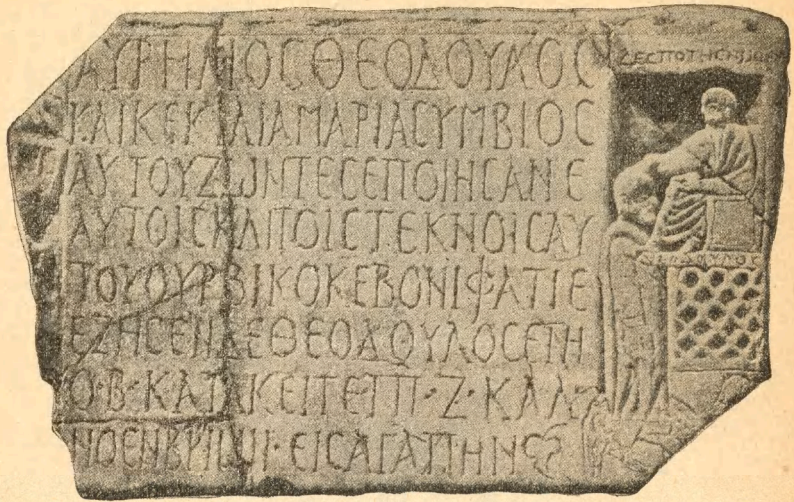 ΑΥΡΗΛΙΟCΘΕΟΔΟΥΛΟC
ΚΑΙΚΕΚΙΛΙΑΜΑΡΙΑCΥΜΒΙΟC
ΑΥΤΟΥΖΩΝΤΕCΕΠΟΙΗCΑΝΕ
ΑΥΤΟΙCΚΑΙΤΟΙCΤΕΚΝΟΙCΑΥ
ΤΟΥΟΥΡΒΙΚΟΚΕΒΟΝΙΦΑΤΙΕ
ΕΖΗCΕΝΔΕΘΕΟΔΟΥΛΟCΕΤΗ
Ο·Β·ΚΑΤΑΚΕΙΤΕΙΠ·Ζ·ΚΑΛ
ΝΟΕΝΒΡΙΩΝ·ΕΙCΑΓΑΠΗΝ
ΔΕCΠΟΤΗC